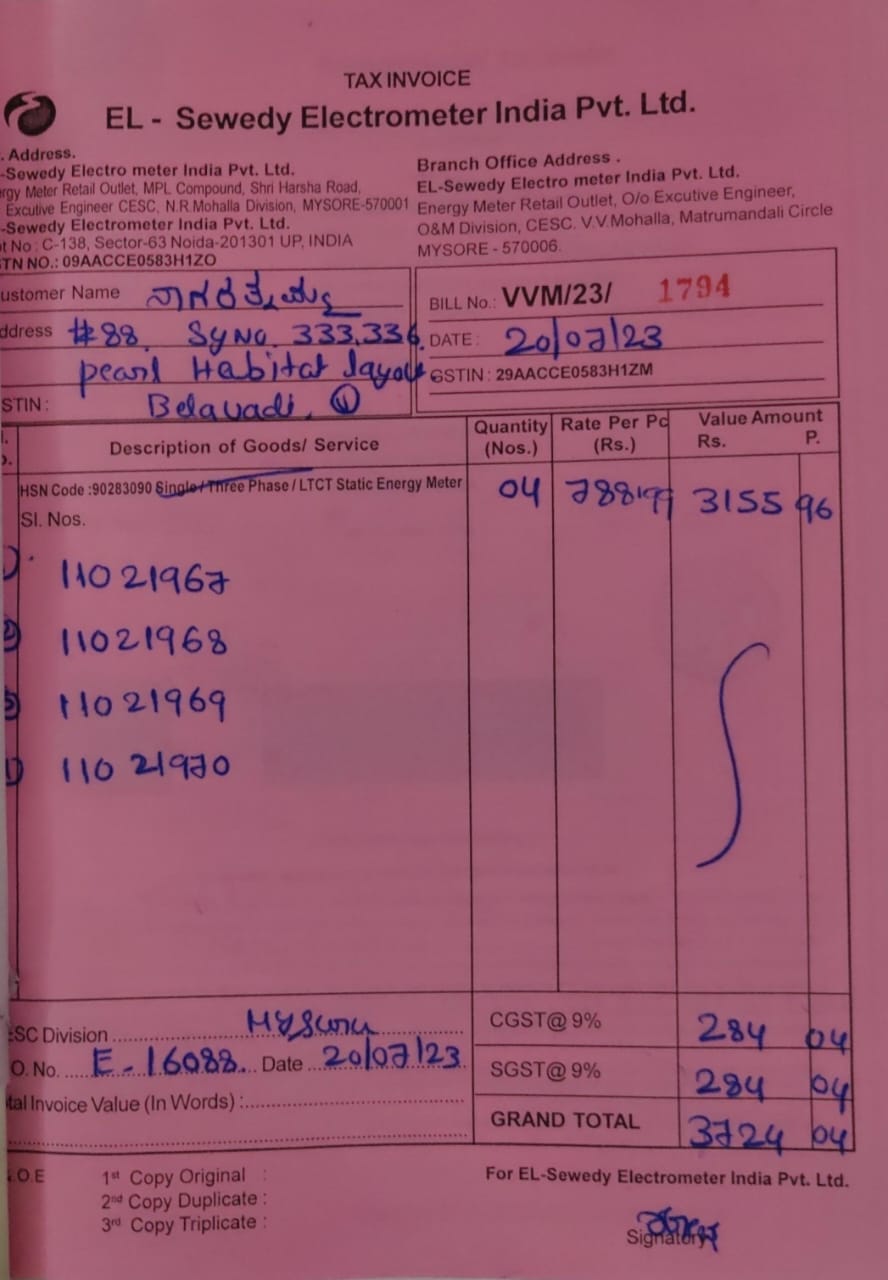 TAX INVOICE
EL - Sewedy Electrometer India Pvt. Ltd.
. Address.
-Sewedy Electro meter India Pvt. Ltd.
rgy Meter Retail Outlet, MPL Compound, Shri Harsha Road,
Excutive Engineer CESC, N.R.Mohalla Division, MYSORE-570001
-Sewedy Electrometer India Pvt. Ltd.
t No : C-138, Sector-63 Noida-201301 UP, INDIA
TN NO.: 09AACCE0583H1ZO
Branch Office Address .
EL-Sewedy Electro meter India Pvt. Ltd.
Energy Meter Retail Outlet, O/o Excutive Engineer,
O&M Division, CESC. V.V.Mohalla, Matrumandali Circle
MYSORE - 570006.
ustomer Name
ddress #88, Sy No. 333,336,
pearl Habitat layout
STIN : Belavadi. 1
BILL No.: VVM/23/ 1794
DATE : 20/07/23
GSTIN : 29AACCE0583H1ZM
Description of Goods/ Service Quantity (Nos.) Rate Per Pc (Rs.) Value Amount Rs. P.
HSN Code :90283090 Single / Three Phase / LTCT Static Energy Meter 04 788.99 3155 96
Sl. Nos.
1) 11021967
2) 11021968
3) 11021969
11021970
SC Division Mysuru
O. No. E-16088 Date 20/07/23
tal Invoice Value (In Words) :
CGST@ 9% 284 04
SGST@ 9% 284 04
GRAND TOTAL 3724 04
.O.E
1st Copy Original :
2nd Copy Duplicate :
3rd Copy Triplicate :
For EL-Sewedy Electrometer India Pvt. Ltd.
Signatory